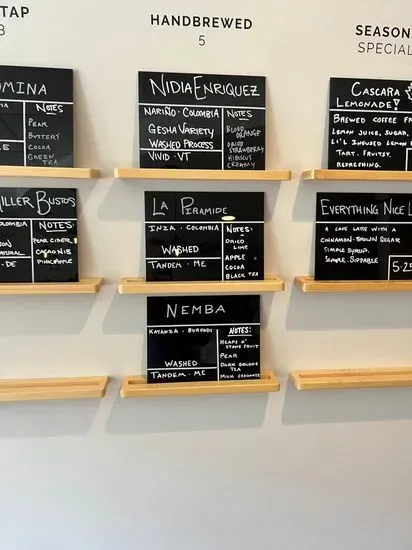 TAP
3
OMINA
NOTES
PEAR
BUTTERY
COCOA
GREEN TEA
ILLER BUSTOS
NOTES:
PEAR CIDER
CACAO NIB
PINEAPPLE
· DE
HANDBREWED
5
NIDIA ENRIQUEZ
NARIÑO · COLOMBIA
GESHA VARIETY
WASHED PROCESS
VIVID · VT
NOTES
BLOOD ORANGE
DRIED STRAWBERRY
HIBISCUS
CREAMY
LA PIRAMIDE
INZA · COLOMBIA
WASHED
TANDEM · ME
NOTES:
DRIED LIME
APPLE
COCOA
BLACK TEA
NEMBA
KAYANZA · BURUNDI
WASHED
TANDEM · ME
NOTES:
HEAPS O'
STONE FRUIT
PEAR
DARK OOLONG
TEA
MILK CHOCOLATE
SEASON
SPECIAL
CASCARA
LEMONADE
BREWED COFFEE FR
LEMON JUICE, SUGAR,
LI'L INFUSED LEMON P
TART. FRUITY.
REFRESHING.
EVERYTHING NICE L
A CAFE LATTE WITH A
CINNAMON-BROWN SUGAR
SIMPLE SYRUP.
SIMPLE. SIPPABLE
5.25